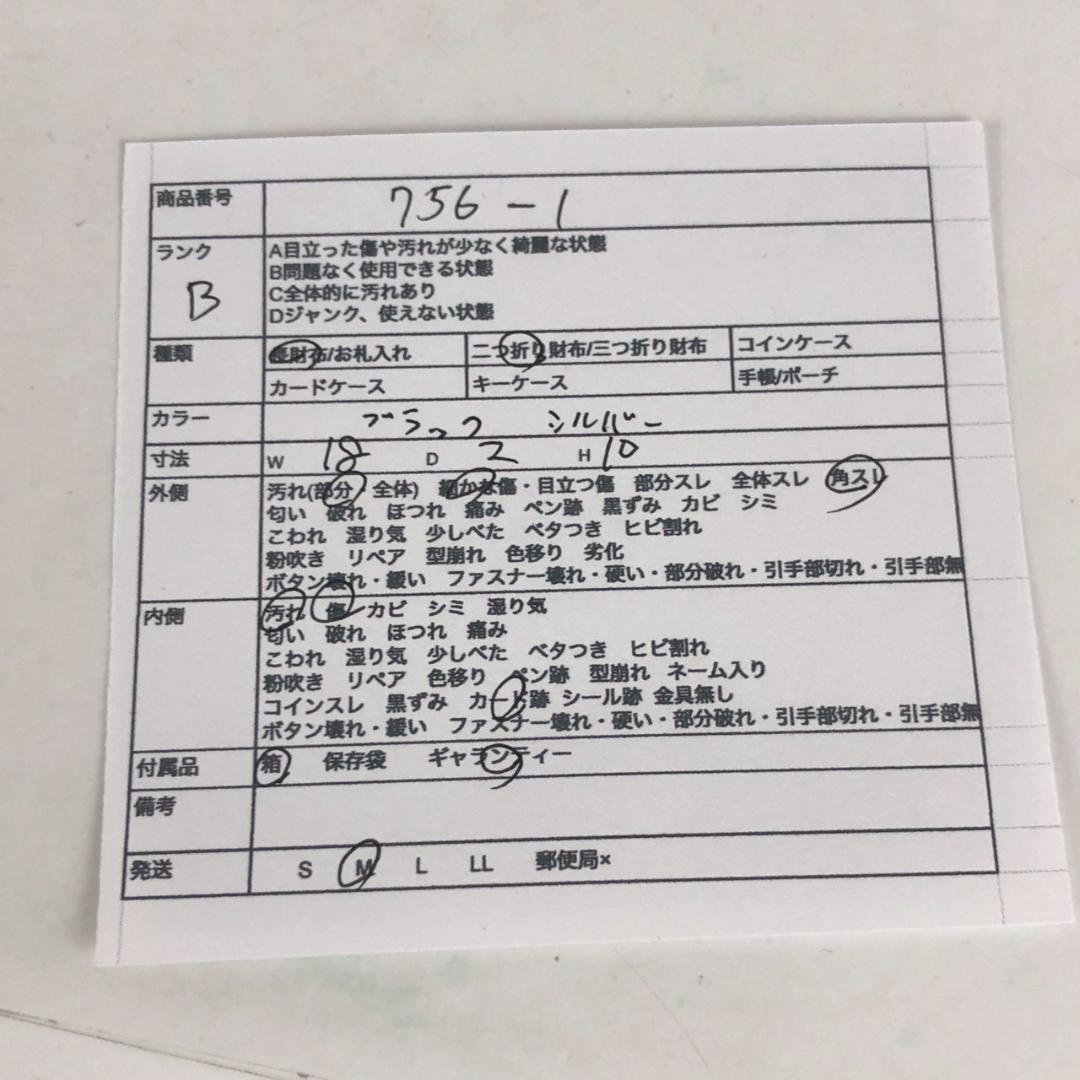 商品番号 756-1
ランク B
A目立った傷や汚れが少なく綺麗な状態
B問題なく使用できる状態
C全体的に汚れあり
Dジャンク、使えない状態
種類 長財布/お札入れ 二つ折り財布/三つ折り財布 コインケース
カードケース キーケース 手帳/ポーチ
カラー ブラック シルバー
寸法 W 18 D 2 H 10
外側 汚れ(部分/全体) 細かな傷・目立つ傷 部分スレ 全体スレ 角スレ
匂い 破れ ほつれ 痛み ペン跡 黒ずみ カビ シミ
こわれ 湿り気 少しべた ベタつき ヒビ割れ
粉吹き リペア 型崩れ 色移り 劣化
ボタン壊れ・緩い ファスナー壊れ・硬い・部分破れ・引手部切れ・引手部無
内側 汚れ 傷 カビ シミ 湿り気
匂い 破れ ほつれ 痛み
こわれ 湿り気 少しべた ベタつき ヒビ割れ
粉吹き リペア 色移り ペン跡 型崩れ ネーム入り
コインスレ 黒ずみ カード跡 シール跡 金具無し
ボタン壊れ・緩い ファスナー壊れ・硬い・部分破れ・引手部切れ・引手部無
付属品 箱 保存袋 ギャランティー
備考
発送 S M L LL 郵便局×